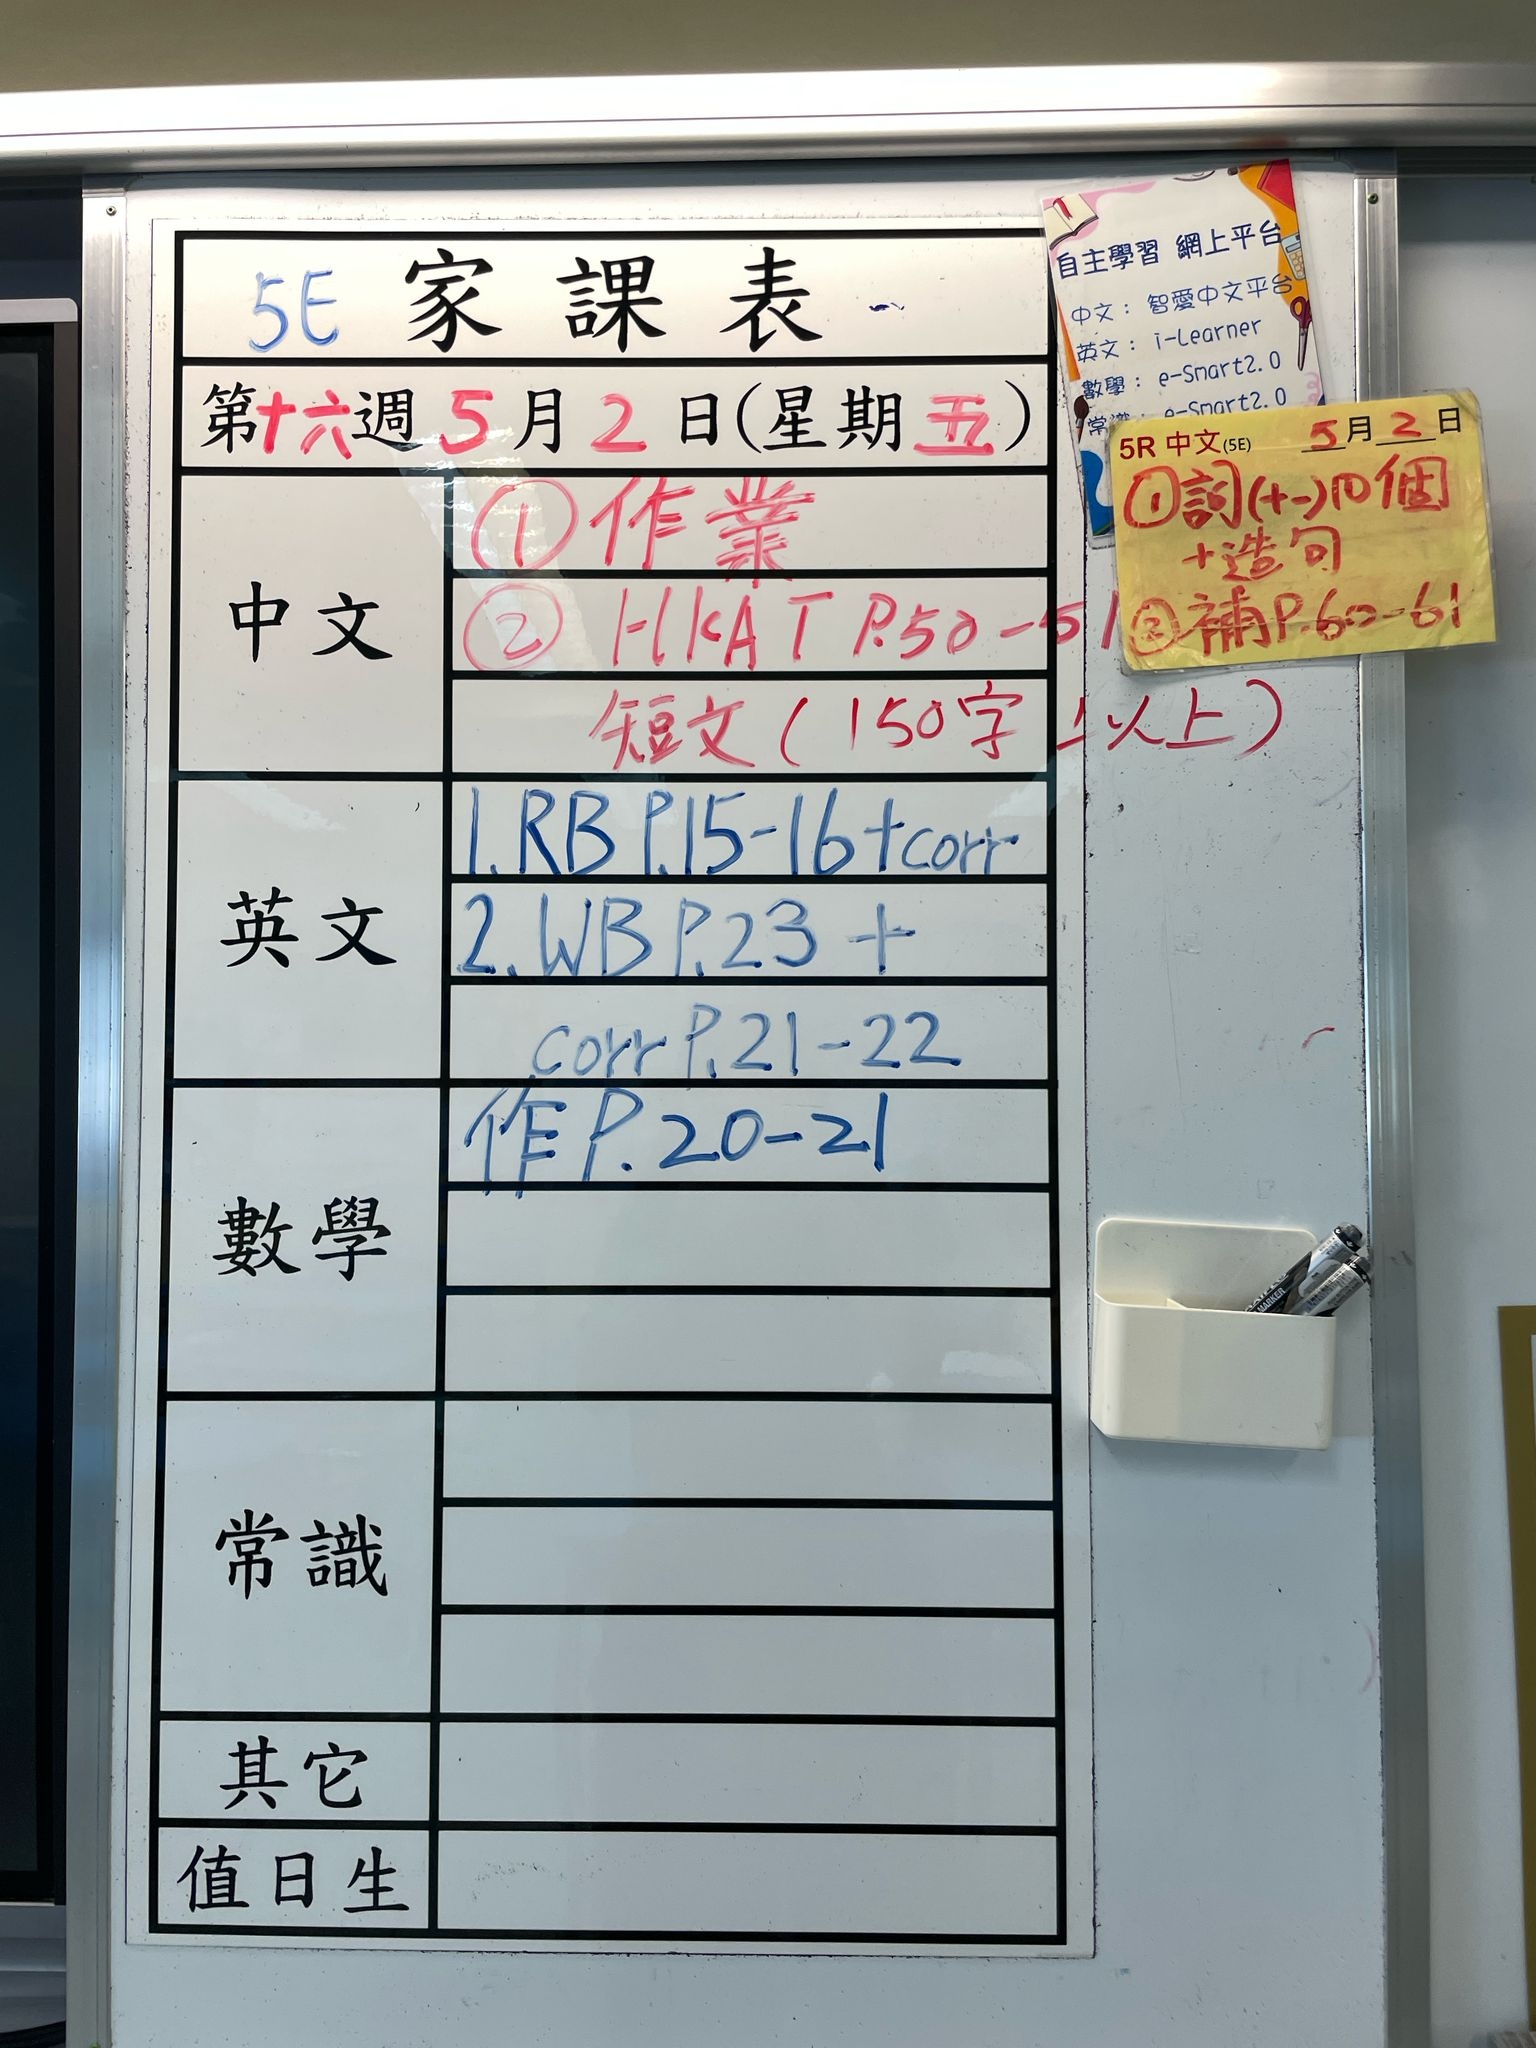 5E 家課表
第十六週 5月2日(星期五)
中文
① 作業
② HKAT P.50-51
短文(150字以上)
英文
1. RB P.15-16+corr
2. WB P.23 +
corr P.21-22
數學
作 P.20-21
常識
其它
值日生
自主學習 網上平台
中文：智愛中文平台
英文：i-Learner
數學：e-Smart2.0
常識：e-Smart2.0
5R 中文(5E) 5月2日
①詞(十一)10個
+造句
②補P.60-61
MARKER